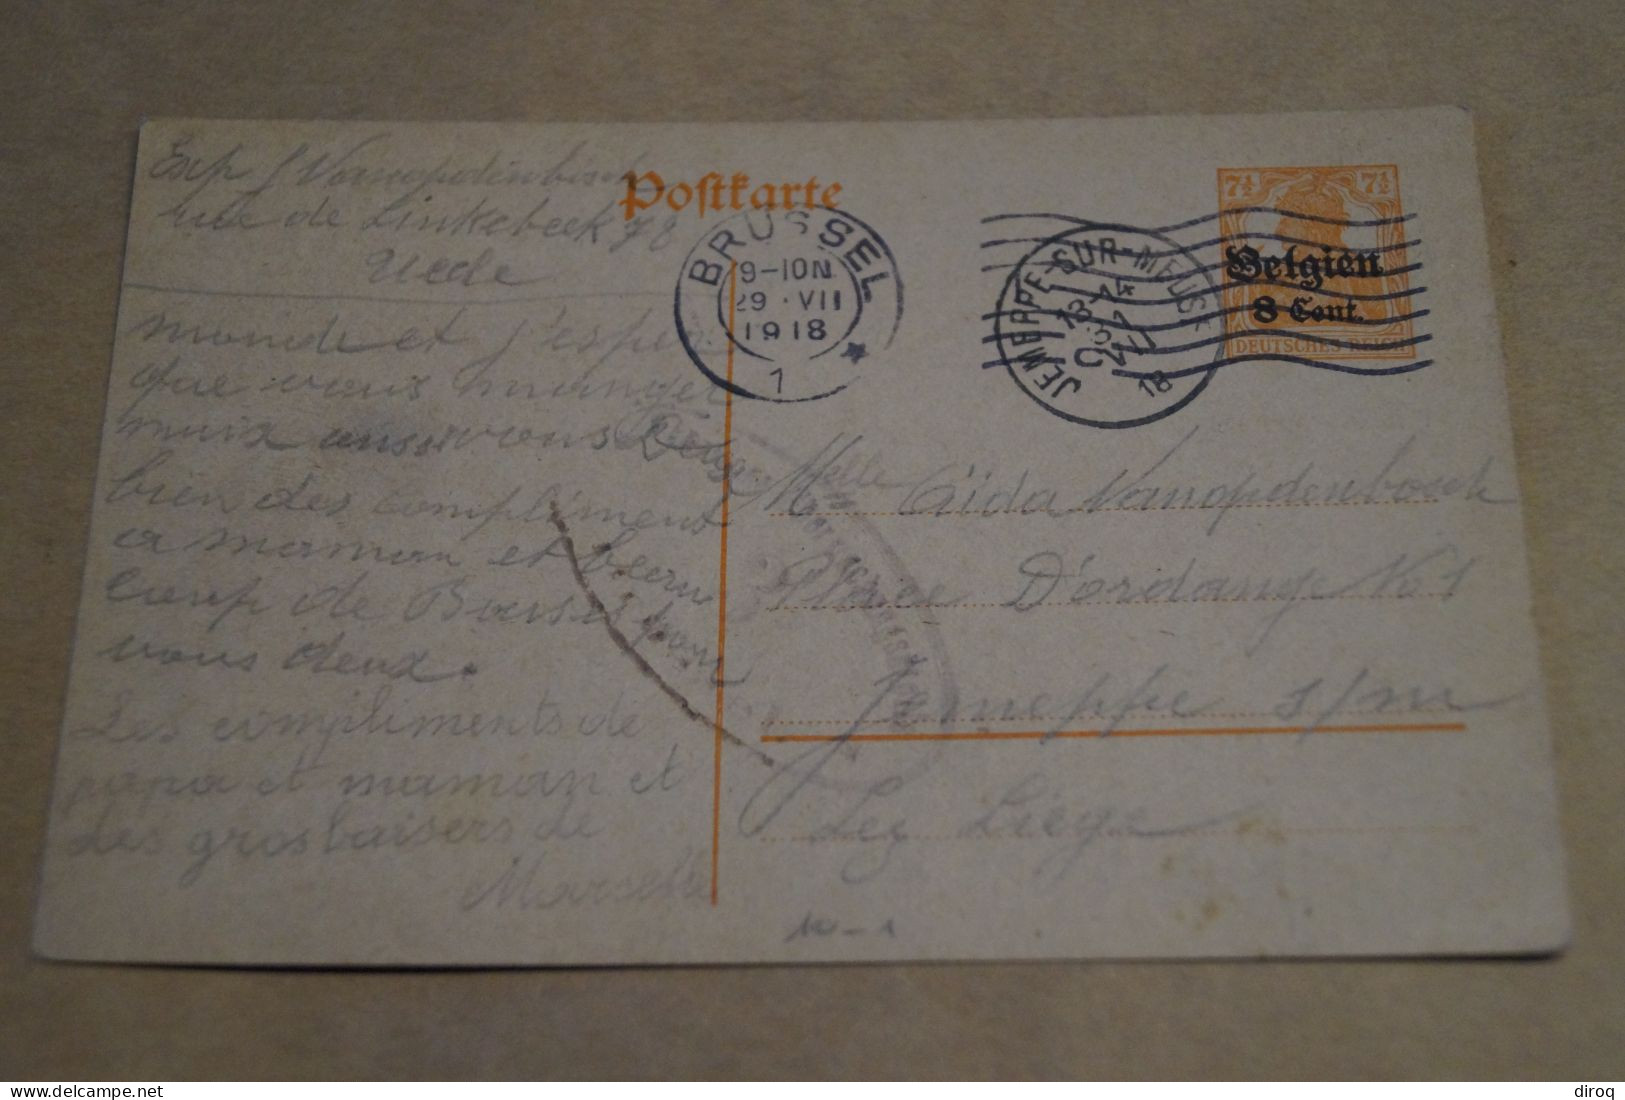 Exp J Vanopdenbosch
rue de Linkebeek 78
Postkarte
BRÜSSEL
9-10N
29.VII
1918
1
JEMEPPE-SUR-MEUSE
13-14
31
VII
C
18
7½ 7½
Belgien
8 Cent.
DEUTSCHES REICH
monde et j'espère
que vous manger
mieux aussi vous
bien des compliment
a maman et
coup de Baisés pour
vous deux.
Les compliments de
papa et maman et
des gros baisers de
Marcelle
Melle Aïda Vanopdenbosch
Place D'ordange No 1
Jemeppe s/m
Lez Liége
10-1
diroq